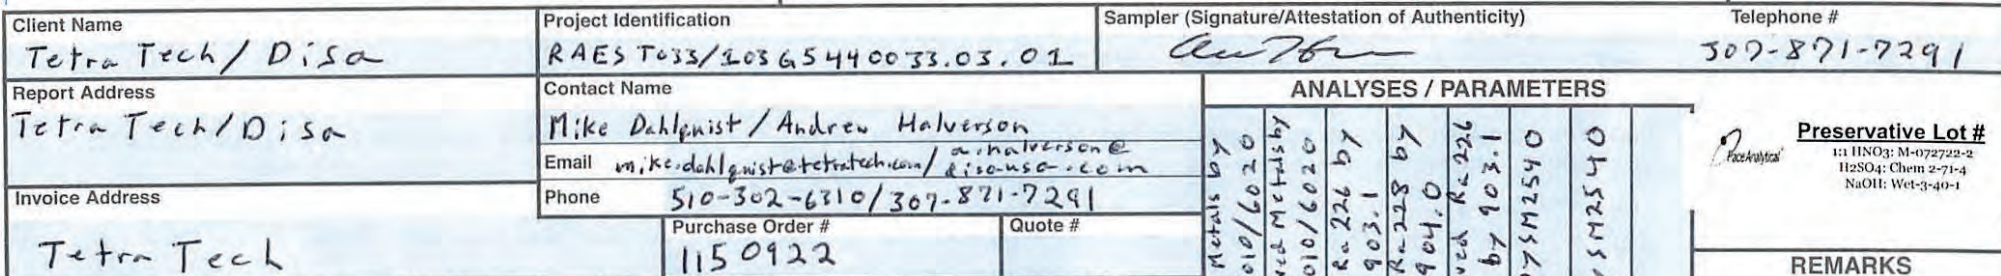 Client Name
Tetra Tech/ Disa
Project Identification
RAES TO33/103G5440033.03.01
Sampler (Signature/Attestation of Authenticity)
Telephone #
307-871-7291
Report Address
Tetra Tech/Disa
Contact Name
Mike Dahlquist / Andrew Halverson
Email mike.dahlquist@tetratech.com/ a.halverson@
disausa.com
Phone 510-302-6310/307-871-7291
Invoice Address
Tetra Tech
Purchase Order #
1150922
Quote #
ANALYSES / PARAMETERS
Metals by
010/6020
ved Metals by
010/6020
Ra 226 by
903.1
Ra-228 by
904.0
ved Ra 226
by 903.1
y SM2540
SM2540
Pace Analytical
Preservative Lot #
1:1 HNO3: M-072722-2
H2SO4: Chem 2-71-4
NaOH: Wet-3-40-1
REMARKS